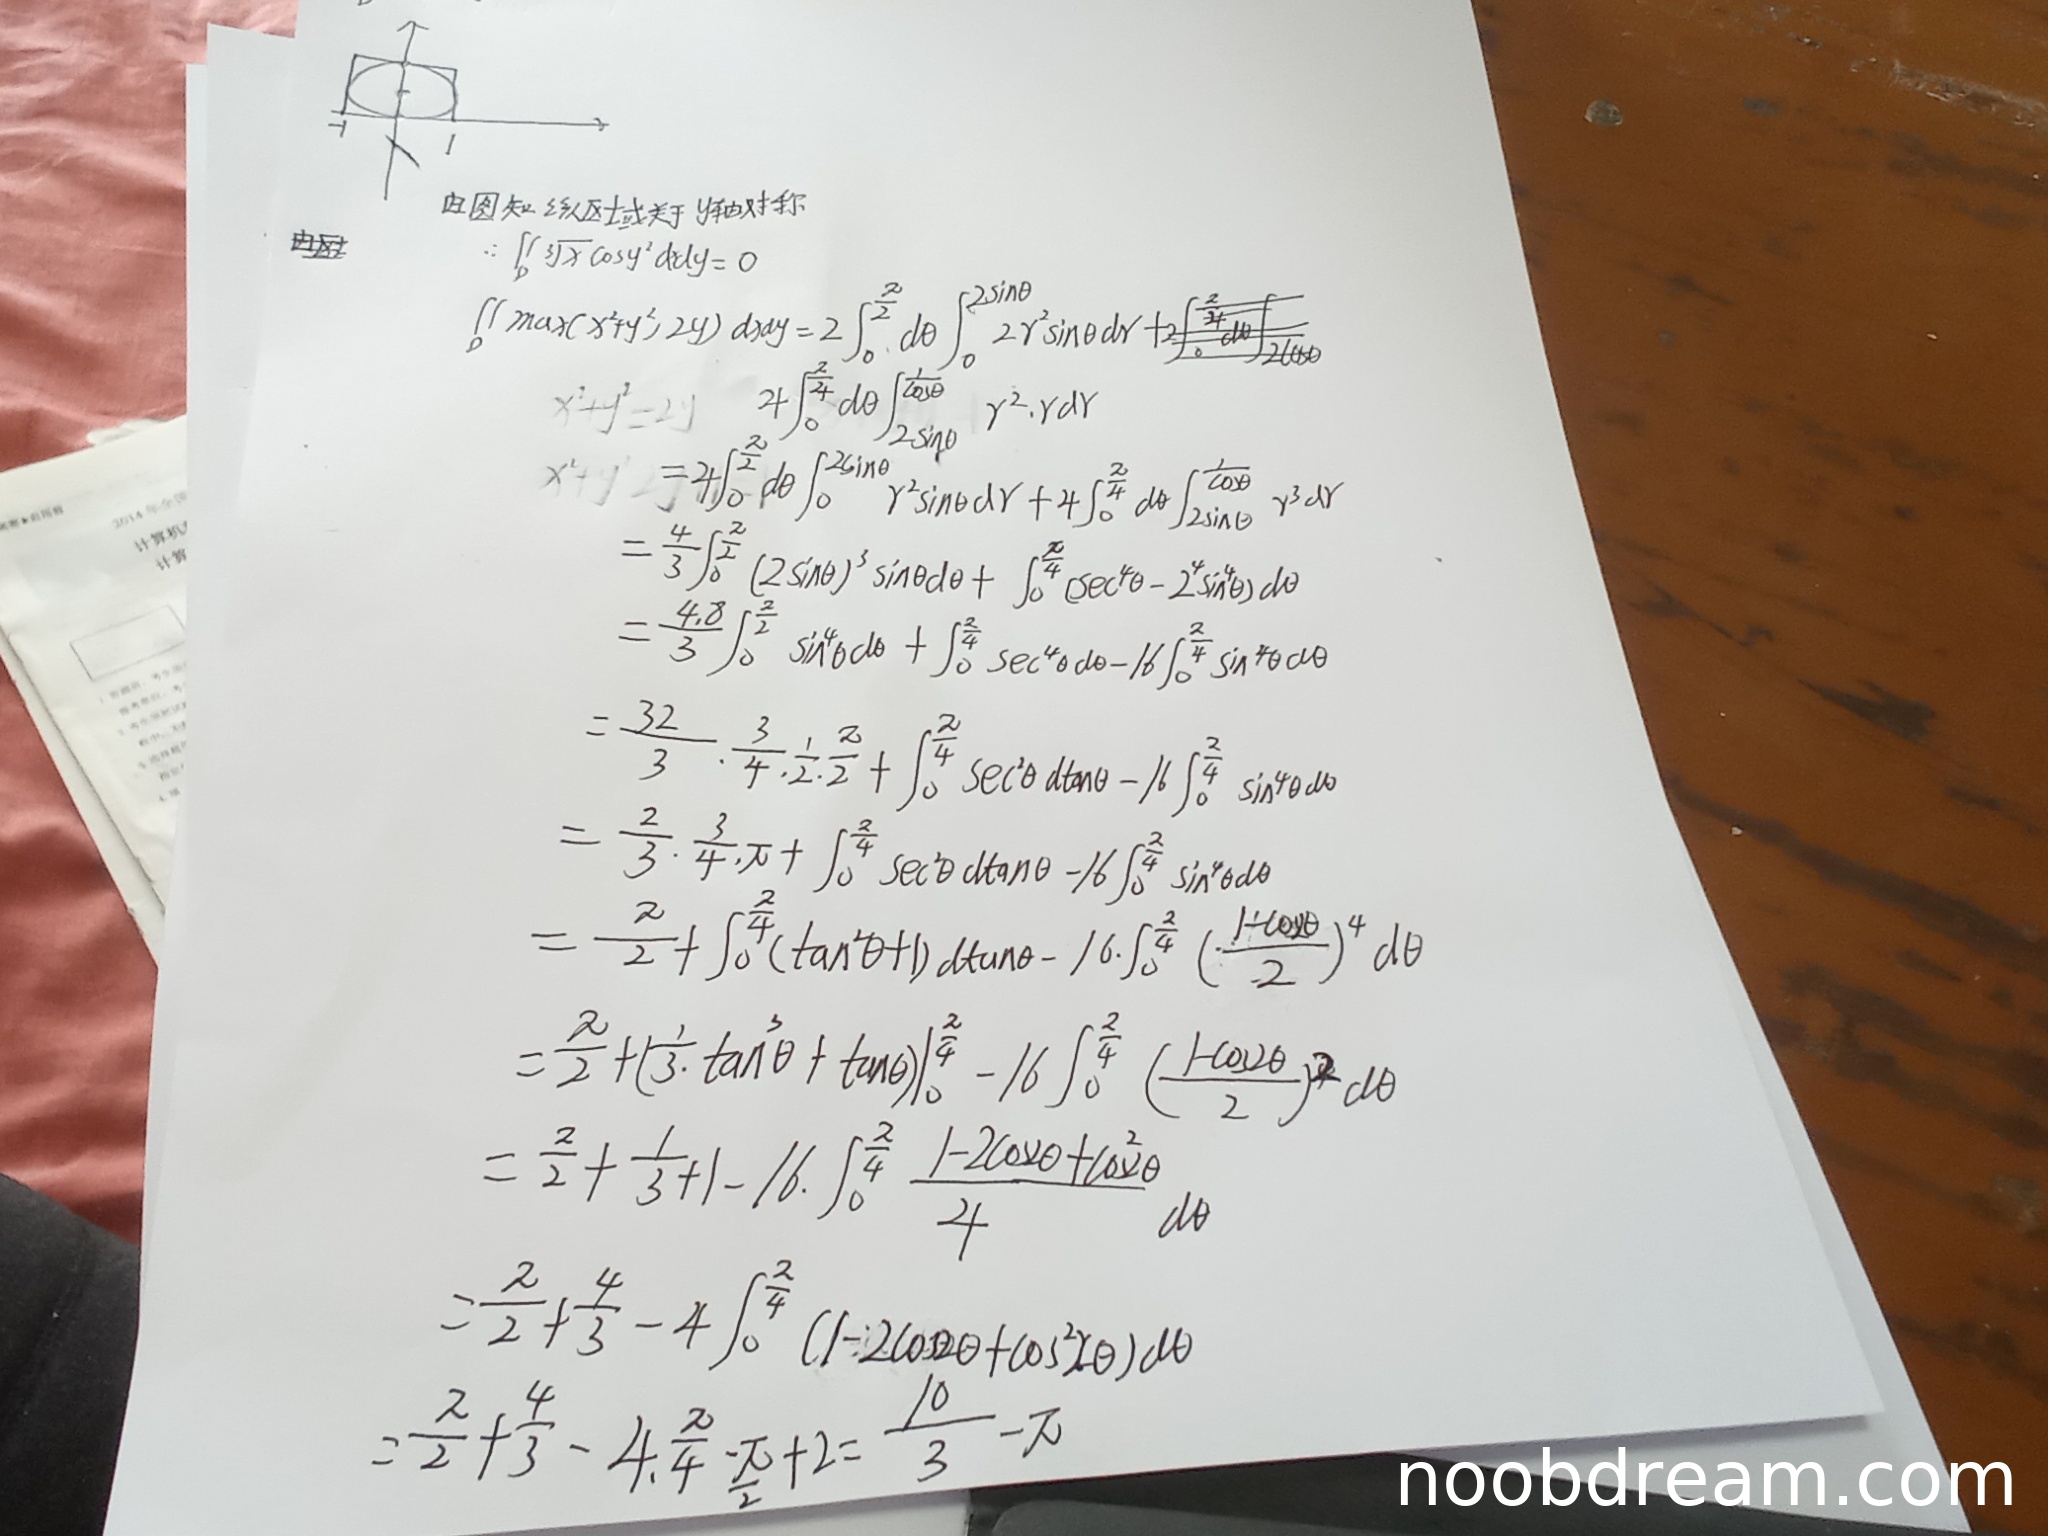 -1
1
由图知 该区域关于y轴对称
∴ ∬_D ∛x cosy² dxdy = 0
∬_D max(x²+y², 2y) dxdy = 2∫_0^{π/2} dθ ∫_0^{2sinθ} 2r²sinθdr +
x²+y²=2y 4∫_0^{π/4} dθ ∫_{2sinθ}^{1/cosθ} r²·rdr
x²+y² = 4∫_0^{π/2} dθ ∫_0^{2sinθ} r²sinθdr + 4∫_0^{π/4} dθ ∫_{2sinθ}^{1/cosθ} r³dr
= 4/3 ∫_0^{π/2} (2sinθ)³ sinθdθ + ∫_0^{π/4} (sec⁴θ - 2⁴sin⁴θ) dθ
= 4·8/3 ∫_0^{π/2} sin⁴θdθ + ∫_0^{π/4} sec⁴θdθ - 16∫_0^{π/4} sin⁴θdθ
= 32/3 · 3/4 · 1/2 · π/2 + ∫_0^{π/4} sec²θ dtanθ - 16∫_0^{π/4} sin⁴θdθ
= 2/3 · 3/4 · π + ∫_0^{π/4} sec²θ dtanθ - 16∫_0^{π/4} sin⁴θdθ
= π/2 + ∫_0^{π/4} (tan²θ+1) dtanθ - 16·∫_0^{π/4} ((1-cos2θ)/2)⁴ dθ
= π/2 + (1/3·tan³θ + tanθ)|_0^{π/4} - 16∫_0^{π/4} ((1-cos2θ)/2)² dθ
= π/2 + 1/3 + 1 - 16·∫_0^{π/4} (1-2cos2θ+cos²2θ)/4 dθ
= π/2 + 4/3 - 4∫_0^{π/4} (1-2cos2θ+cos²2θ) dθ
= π/2 + 4/3 - 4·π/4 - π/2 + 2 = 10/3 - π
2014年全国
计算机
计算
noobdream.com